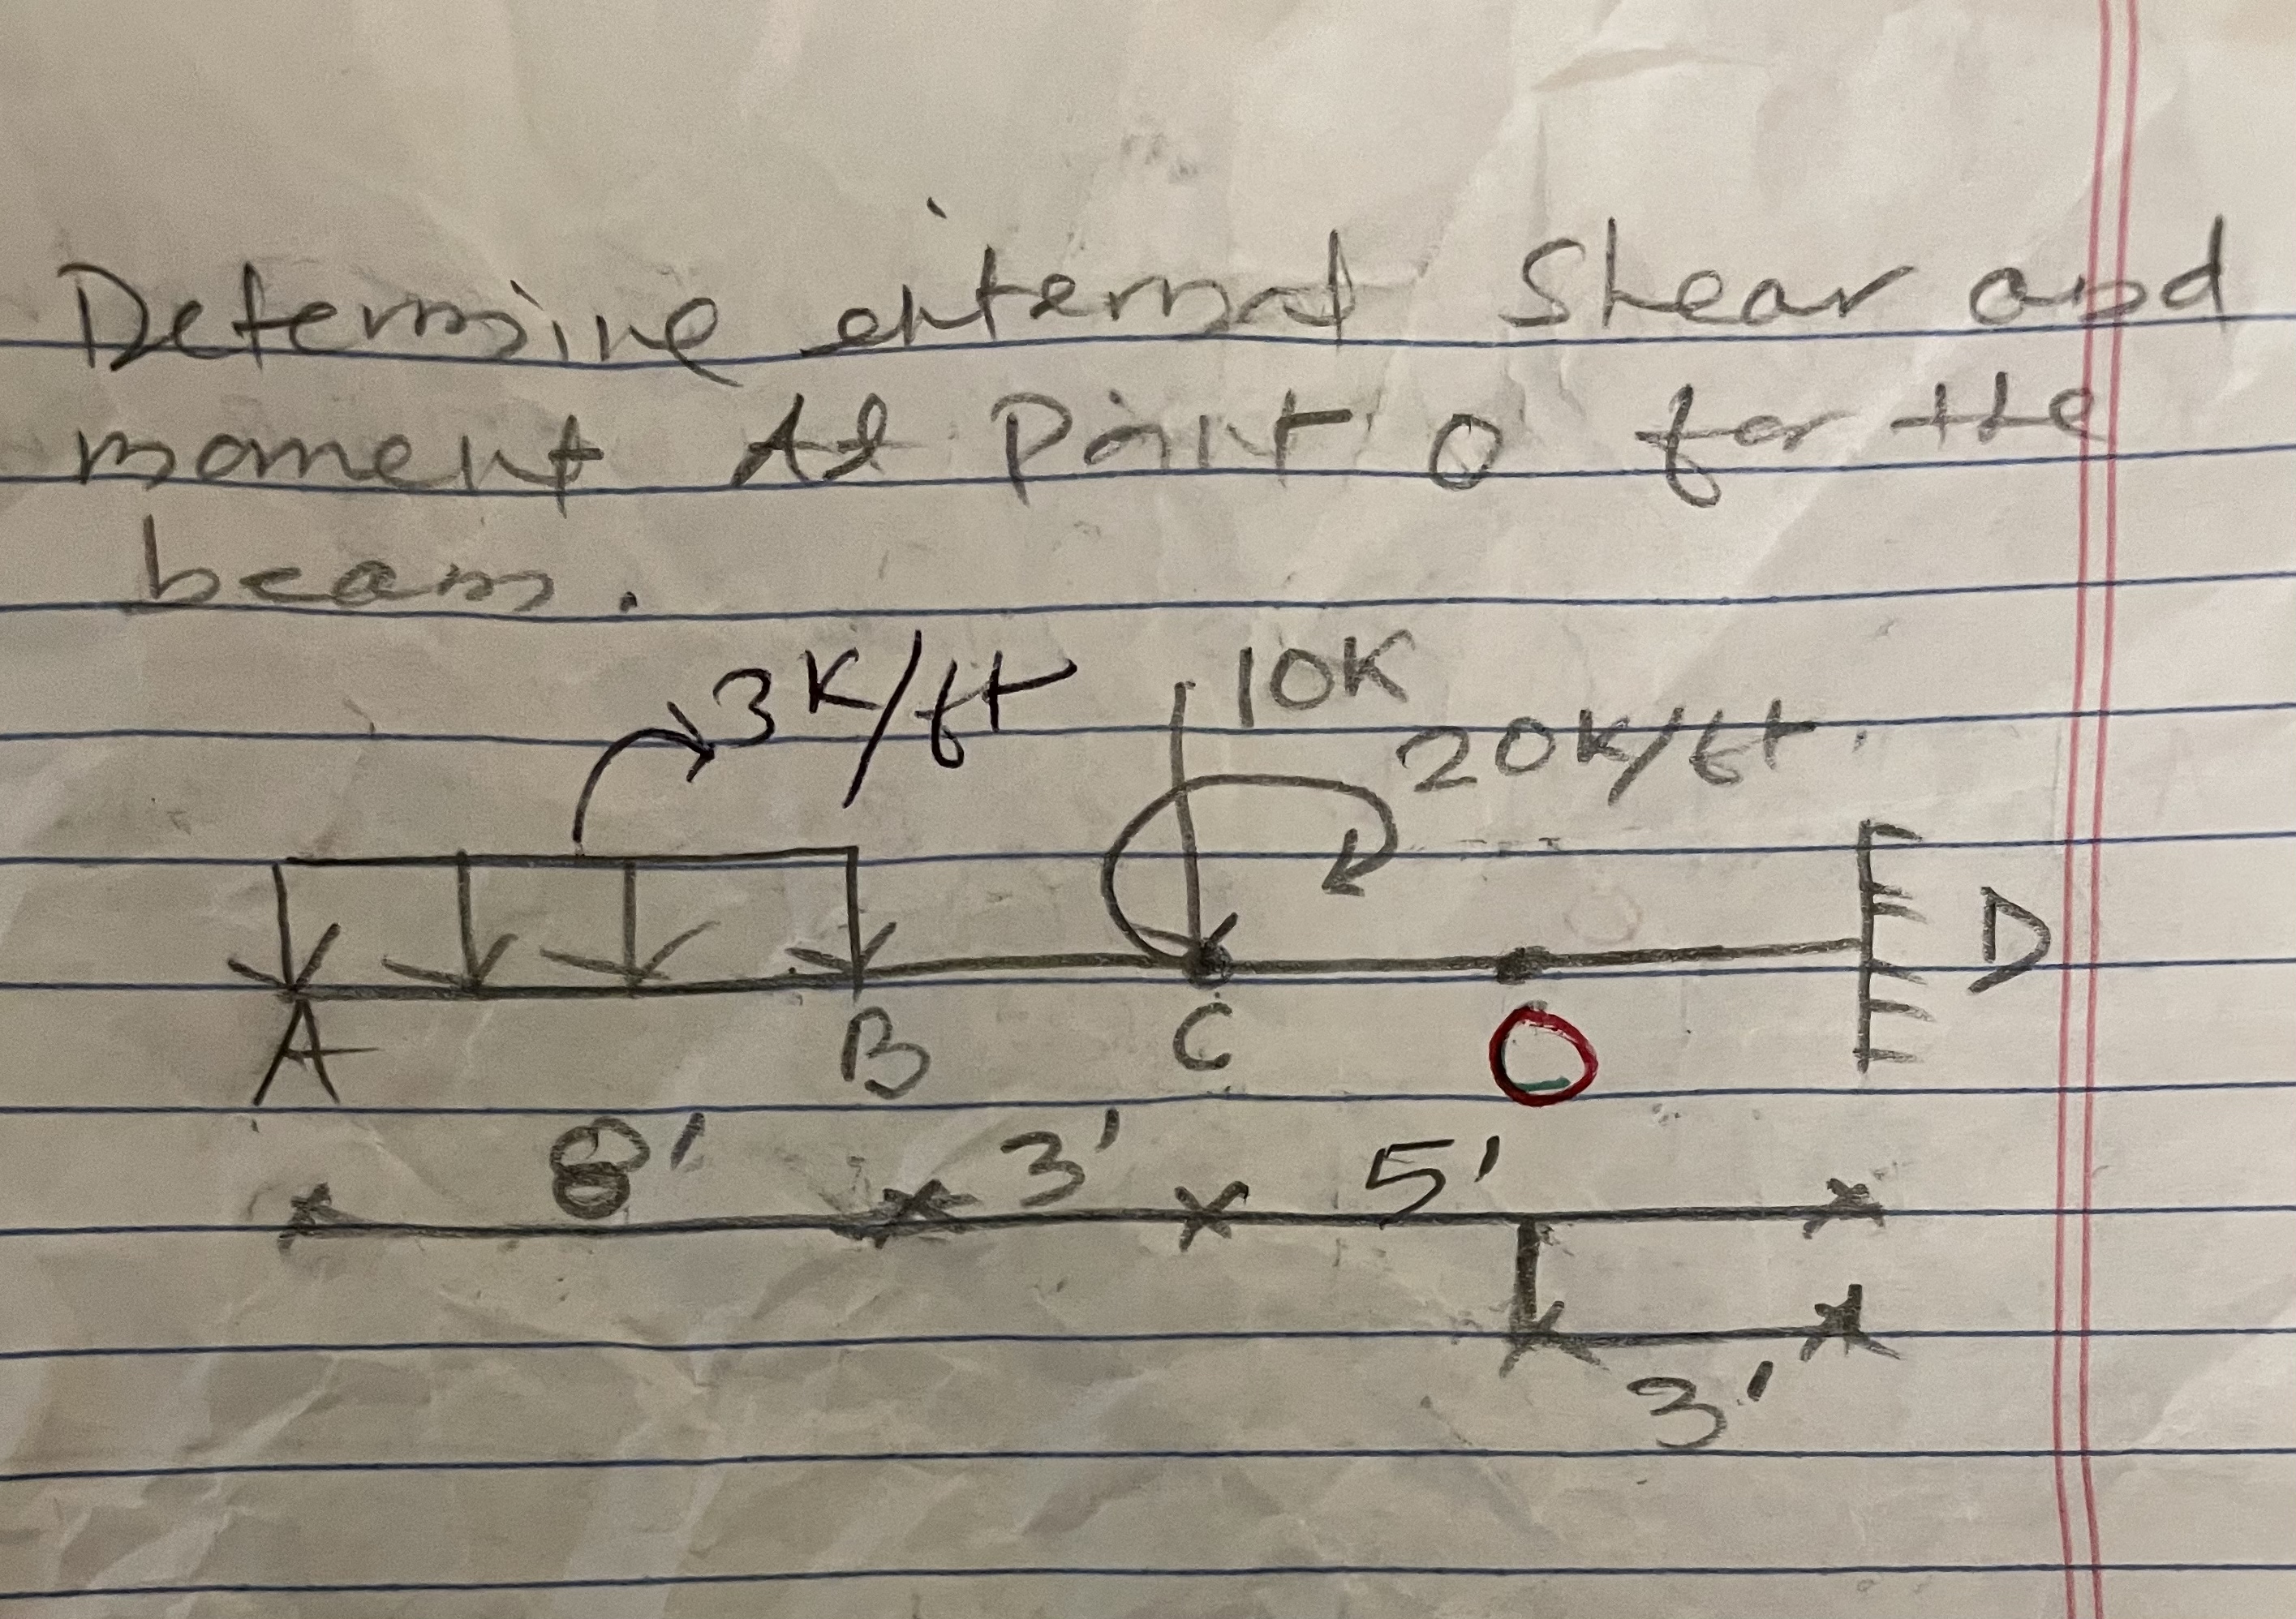 Determine internal Shear and
moment At Point O for the
beam.
3K/ft
10K
20K/ft.
A B C O D
8' 3' 5'
3'